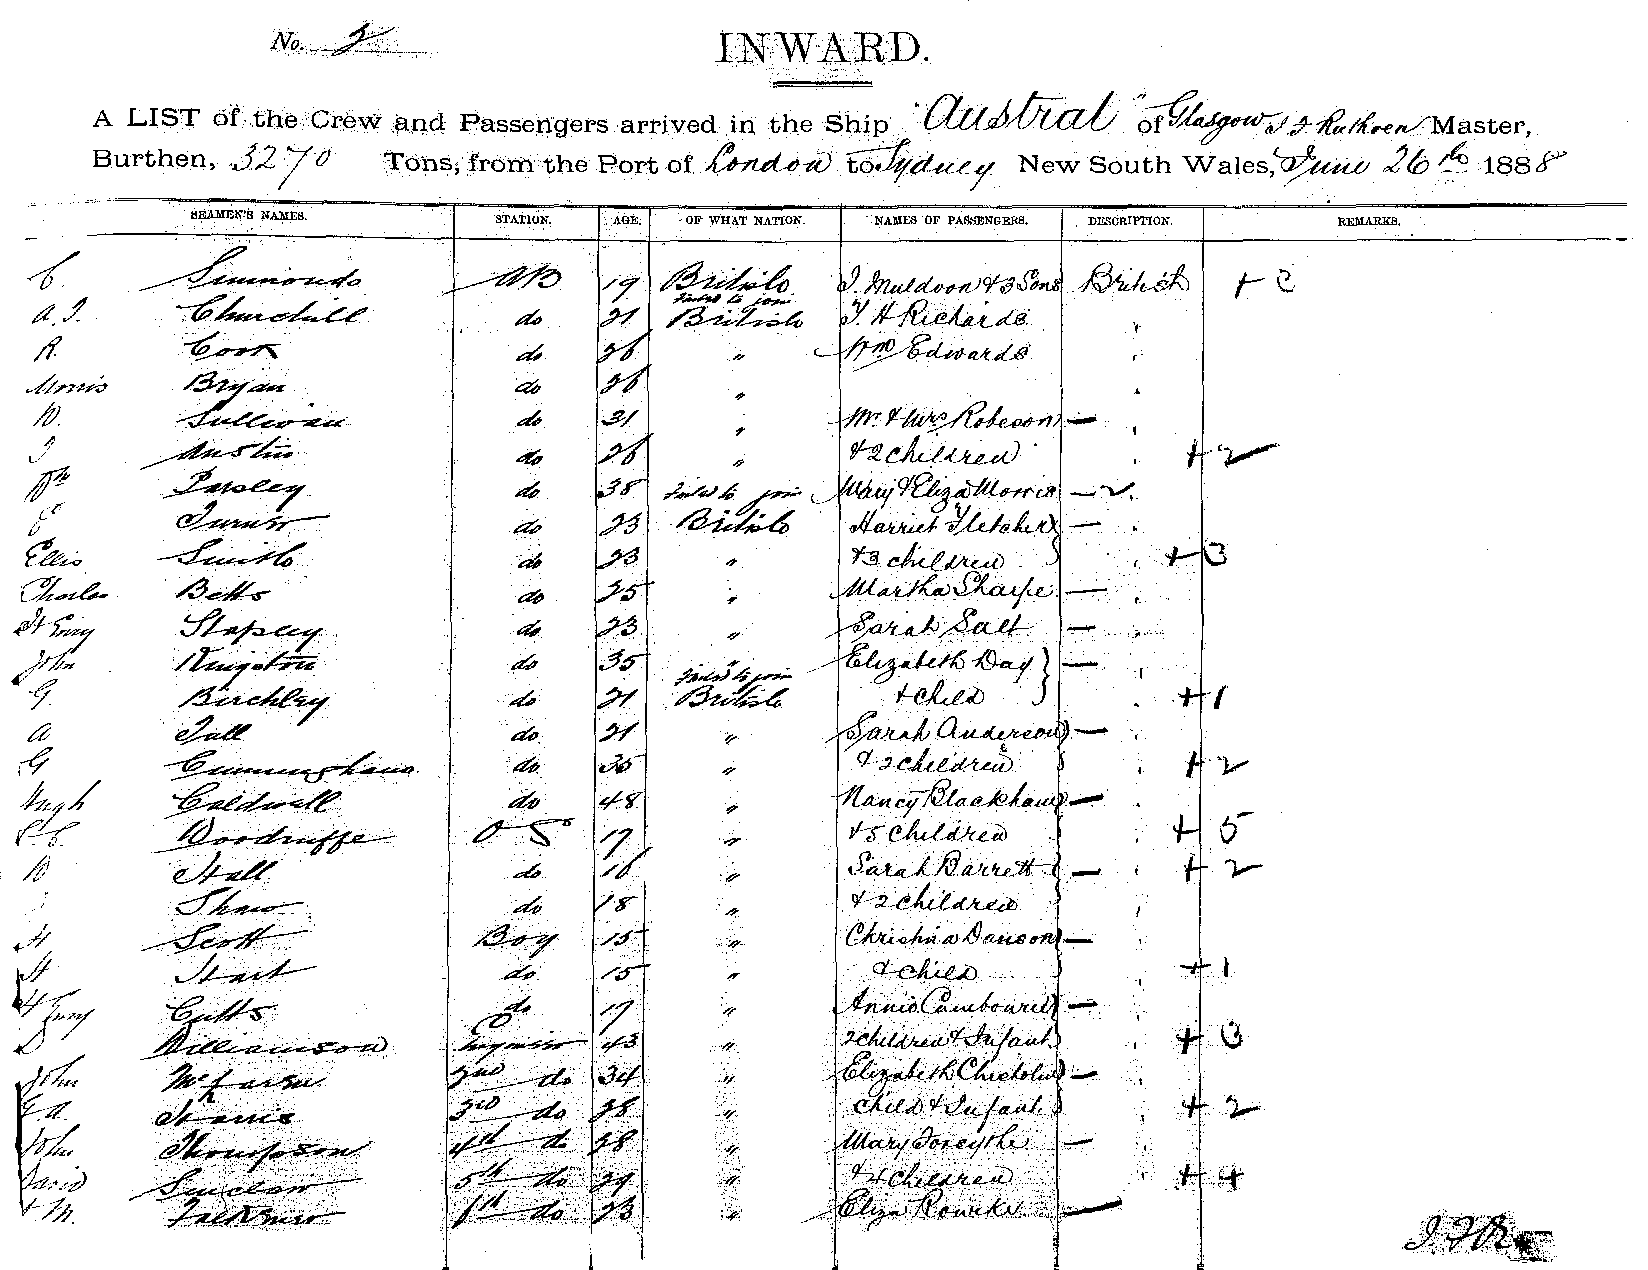 No. 2
INWARD.
A LIST of the Crew and Passengers arrived in the Ship "Austral" of Glasgow, J F Ruthven Master,
Burthen, 3270 Tons, from the Port of London to Sydney New South Wales, June 26th 1888
SEAMEN'S NAMES. STATION. AGE. OF WHAT NATION. NAMES OF PASSENGERS. DESCRIPTION. REMARKS.
C. Simmonds AB 19 British J. Muldoon & 3 Sons British + 3
Failed to join
A. J. Churchill do 21 British T. H Richards "
R. Cook do 26 " Wm Edwards "
Morris Bryan do 26 " "
D. Sullivan do 31 " Mr & Mrs Robeson — "
J Austin do 26 " & 2 children " + 2
Wm Parsley do 38 Failed to join Mary & Eliza Morris — 2.
E Turner do 23 British Harriet Fletcher — "
Ellis Smith do 23 " & 3 children " + 3
Charles Betts do 25 " Martha Sharpe — "
Henry Stapley do 23 " Sarah Salt — "
John Kingston do 35 " Elizabeth Day —
Failed to join
G. Birchley do 21 British & child " + 1
A Tull do 21 " Sarah Anderson — "
G Cunningham do 35 " & 2 children " + 2
Hugh Caldwell do 48 " Nancy Blackham —
Woodruffe O S 17 " & 5 children " + 5
D Hall do 16 " Sarah Barrett — " + 2
Shaw do 18 " & 2 children "
H Scott Boy 15 " Christina Dawson — "
H Hart do 15 " & child " + 1
Henry Cutts do 17 " Annie — "
D Williamson Engineer 43 " 2 children & Infant " + 3
John McLaren 2nd do 34 " Elizabeth Chisholm — "
G A Harris 3rd do 28 " child & Infant " + 2
John Thompson 4th do 28 " Mary Forsythe — "
David Sinclair 5th do 29 " & 4 children " + 4
M. Falkner 6th do 23 " Eliza Rourke —
J. F. R.